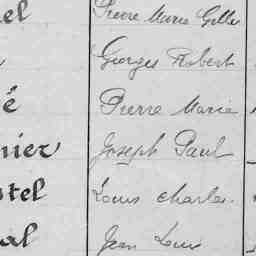 el Pierre Marie Gilles
Georges Robert
é Pierre Marie
nier Joseph Paul
tel Louis Charles
al Jean Louis